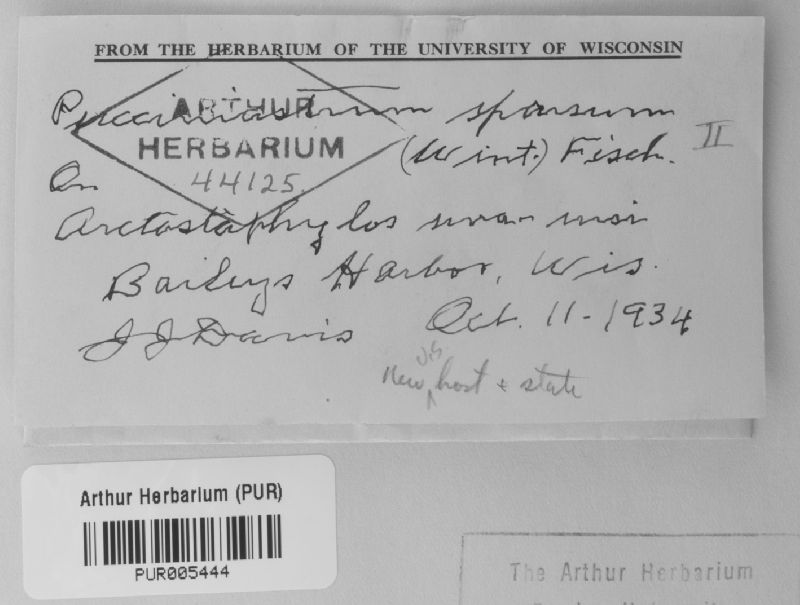 FROM THE HERBARIUM OF THE UNIVERSITY OF WISCONSIN
Pucciniastrum sparsum
ARTHUR
HERBARIUM
44125.
(Wint.) Fisch. II
On
Arctostaphylos uva-ursi
Baileys Harbor, Wis.
J J Davis Oct. 11-1934
New US host + state
Arthur Herbarium (PUR)
PUR005444
The Arthur Herbarium